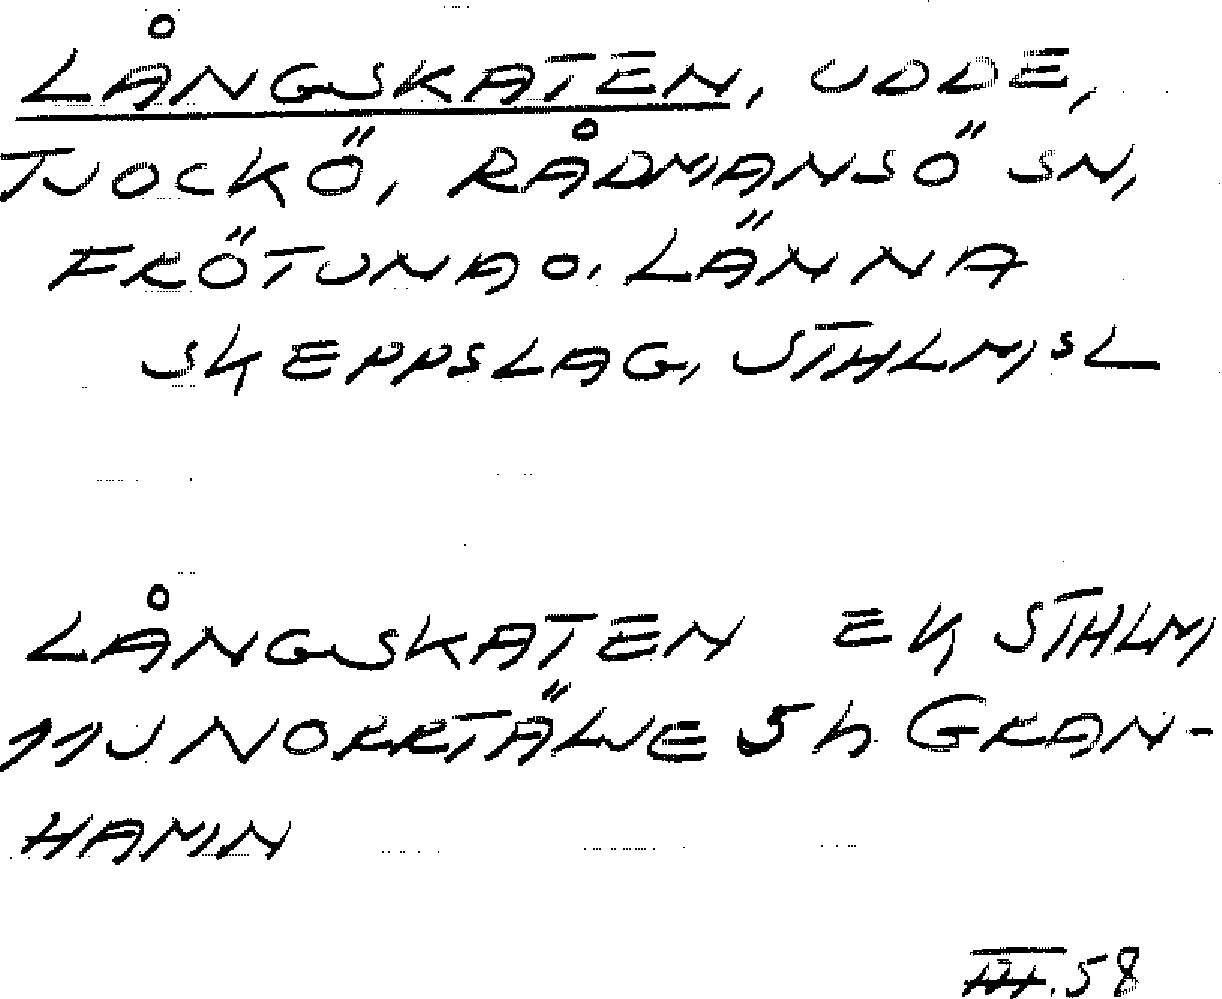 LÅNGSKATEN, UDDE,
TJOCKÖ, RÅDMANSÖ SN,
FRÖTUNA O. LÄNNA
SKEPPSLAG, STHLMSL
LÅNGSKATEN EK STHLM
11J NORRTÄLJE 5h GRAN-
HAMN
58